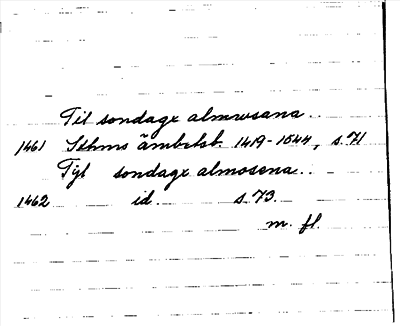 Til sondagx almwsana..
1461 Sthms ämbetsb. 1419-1544, s. 71
Tyl sondagx almosena..
1462 id. s. 73.
m. fl.